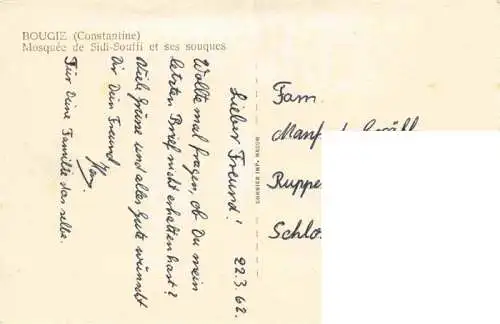 BOUGIE (Constantine)
Mosquée de Sidi-Souffi et ses souques
22.3.62.
Lieber Freund!
Wollte mal fragen, ob Du mein
letzten Brief nicht erhalten hast?
Viele Grüsse und alles Gute wünscht
Dir Dein Freund
Für Deine Familie das selbe.
Fam.
Manf
Ruppe
Schlo